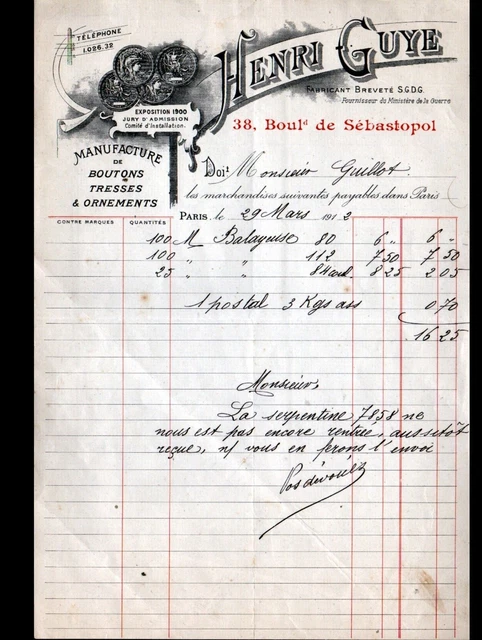 TÉLÉPHONE
1.026.32
HENRI GUYE
FABRICANT BREVETÉ S.G.D.G.
Fournisseur du Ministère de la Guerre
EXPOSITION 1900
JURY D'ADMISSION
Comité d'Installation.
38, Boul.d de Sébastopol
MANUFACTURE
DE
BOUTONS
TRESSES
& ORNEMENTS
Doit Monsieur Guillot.
les marchandises suivantes payables dans Paris
PARIS, le 29 Mars 1912
CONTRE MARQUES QUANTITÉS
100 M Balayeuse 80 6 " 6 "
100 " " 112 7 50 7 50
25 " " 84 8 25 2 05
1 postal 3 Kgs ass 0 70
16 25
Monsieur,
La serpentine 7858 ne
nous est pas encore rentrée, aussitôt
reçue, n/ vous en ferons l'envoi
Vos dévoués